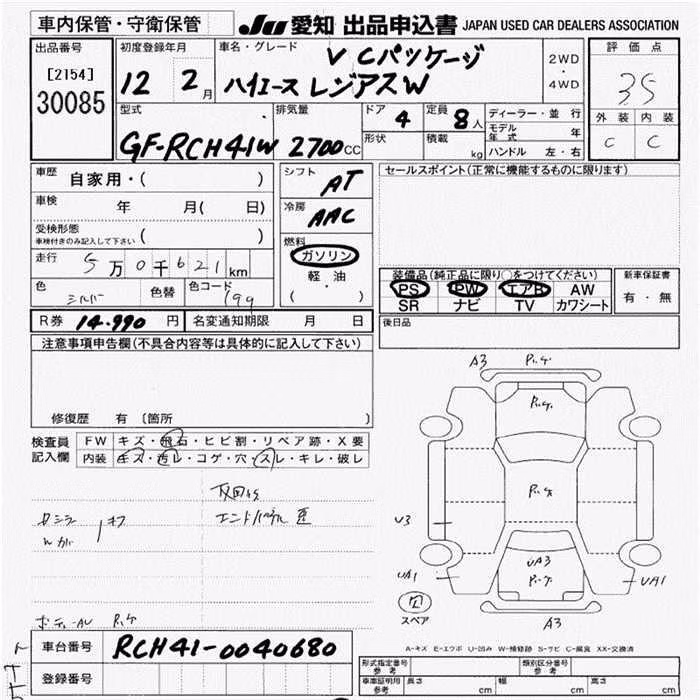 車内保管・守衛保管
JU 愛知 出品申込書 JAPAN USED CAR DEALERS ASSOCIATION
出品番号
[2154]
30085
初度登録年月
12 2月
車名・グレード
V Cパッケージ
ハイエース レジアスW
2WD
・
4WD
評価点
35
外装 内装
C C
型式
GF-RCH41W
排気量
2700CC
ドア
4
形状
定員
8人
積載
kg
ディーラー・並行
モデル年式 年
ハンドル 左・右
車歴
自家用・( )
車検
年 月( 日)
受検形態
車検付きのみ記入して下さい ( )
走行
5万0千621km
色
シルバー
色替
色コード
199
シフト
AT
冷房
AAC
燃料
ガソリン
軽・油
( )
セールスポイント(正常に機能するものに限ります)
装備品(純正品に限り○をつけてください)
PS PW エアB AW
SR ナビ TV カワシート
新車保証書
有・無
後日品
R券 14.990 円 名変通知期限 月 日
注意事項申告欄(不具合内容等は具体的に記入して下さい)
修復歴 有 〔箇所 〕
検査員
記入欄
FW キズ・飛石・ヒビ割・リペア跡・X要
内装 キズ・汚レ・コゲ・穴・スレ・キレ・破レ
A3
U3
UA3
UA1
UA1
A3
スペア
A-キズ E-エクボ U-凹み W-補修跡 S-サビ C-腐食 XX-交換済
車台番号 RCH41-0040680
登録番号
形式指定番号
参考
類別区分番号
参考
車庫証明用
参考
長さ cm 幅 cm 高さ cm